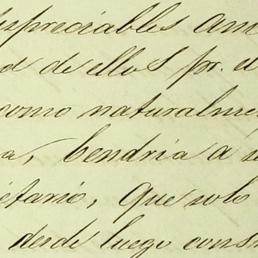 despreciables am
d de ellos por el
como naturalme
a, bendria á se
etario, que solo
desde luego const